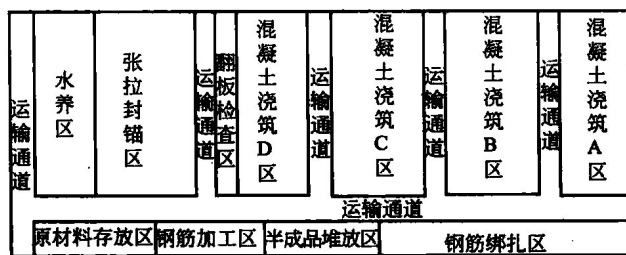 运输通道
水养区
张拉封锚区
运输通道
翻板检查区
混凝土浇筑D区
运输通道
混凝土浇筑C区
运输通道
混凝土浇筑B区
运输通道
混凝土浇筑A区
运输通道
原材料存放区
钢筋加工区
半成品堆放区
钢筋绑扎区